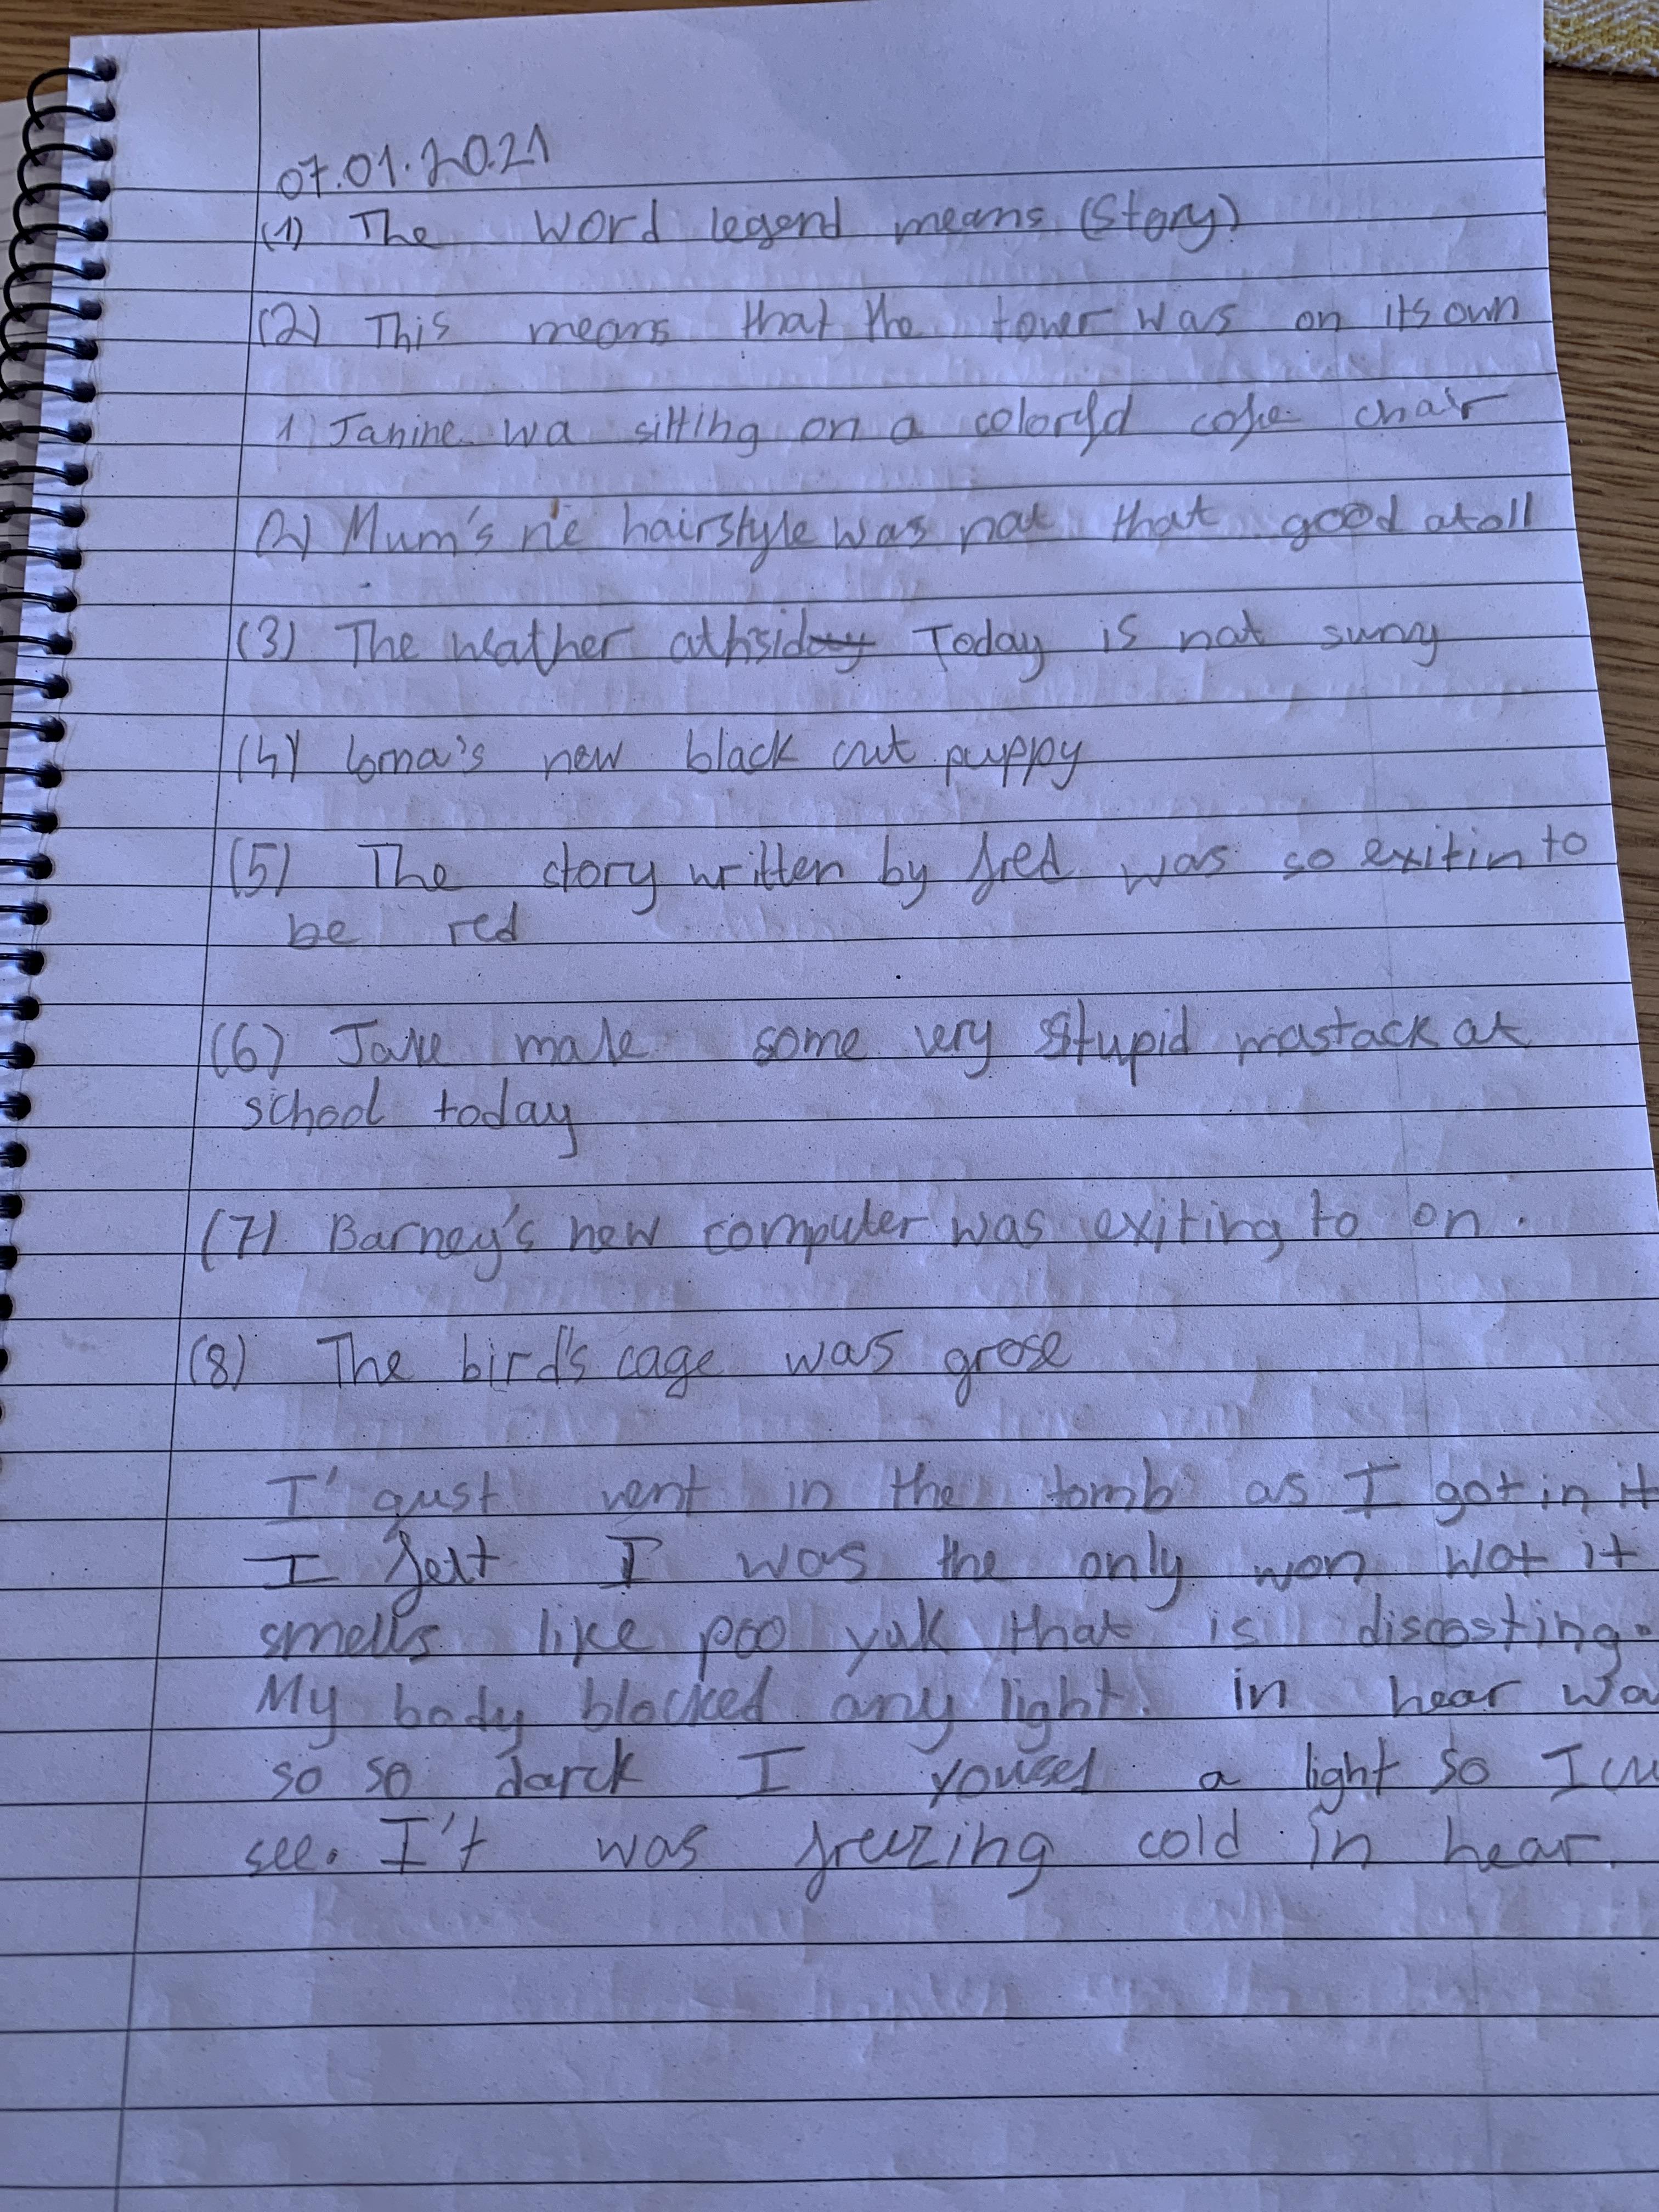 07.01.2021
(1) The word legend means (Story)
(2) This means that the tower was on its own
1) Janine wa sitting on a chair
(2) Mum's ne hairstyle was not that good atoll
(3) The weather Today is not suny
(4) new black cut puppy
(5) The story written by fred was so exitin to
be red
(6) Jake make some very stupid mastack at
school today
(7) Barney's new computer was exiting to on.
(8) The bird's cage was grose
I' gust went in the tomb as I got in it
I felt I was the only won wot it
smells like poo yuk that is discosting.
My body blocked any light. in hear wa
so so darck I yoused a light so I
see. I't was freezing cold in hear.